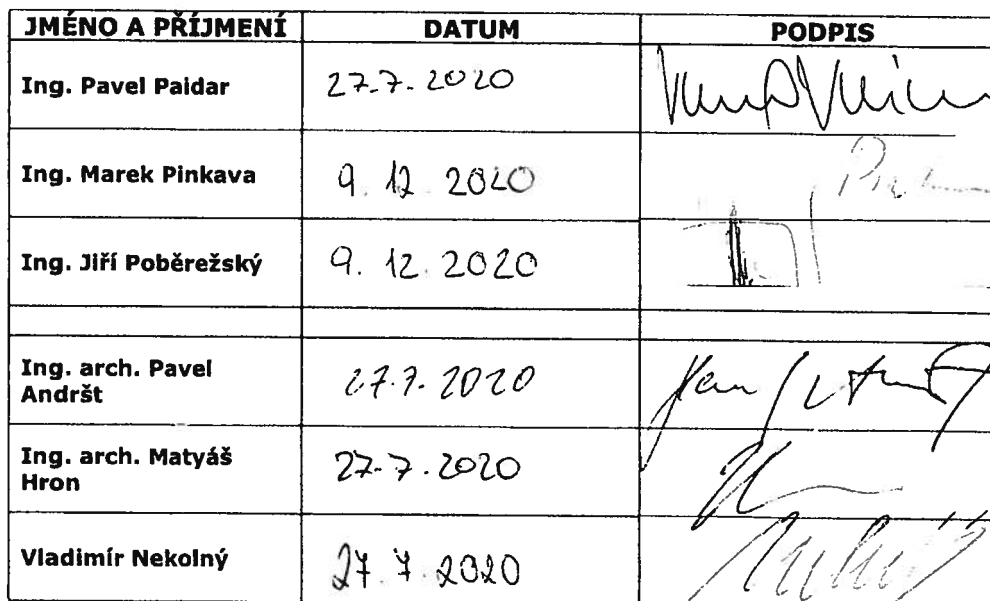 JMÉNO A PŘÍJMENÍ DATUM PODPIS
Ing. Pavel Paidar 27.7.2020
Ing. Marek Pinkava 9. 12. 2020
Ing. Jiří Poběrežský 9. 12. 2020
Ing. arch. Pavel
Andršt 27.7.2020
Ing. arch. Matyáš
Hron 27.7.2020
Vladimír Nekolný 27.7.2020